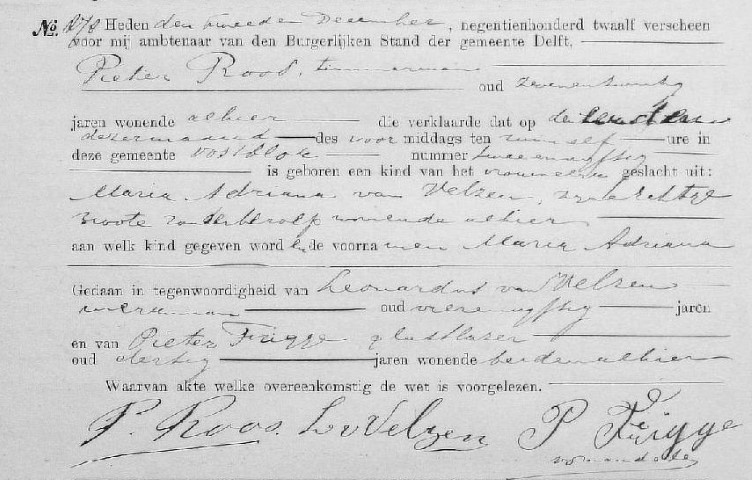 No. 1278 Heden den tweeden December, negentienhonderd twaalf verscheen
voor mij ambtenaar van den Burgerlijken Stand der gemeente Delft,
Pieter Roos, timmerman
oud zevenentwintig
jaren wonende alhier die verklaarde dat op den eersten
dezer maand des voormiddags ten ure in
deze gemeente Oostblok nummer tweeenvijftig
is geboren een kind van het vrouwelijk geslacht uit:
Maria Adriana van Velzen, zijne echtge
noote zonder beroep wonende alhier
aan welk kind gegeven word en de voornamen Maria Adriana
Gedaan in tegenwoordigheid van Leonardus van Velzen
oud vierenvijftig jaren
en van Pieter Frigge glasblazer
oud dertig jaren wonende beiden alhier
Waarvan akte welke overeenkomstig de wet is voorgelezen.
P. Roos. L v Velzen P Frigge